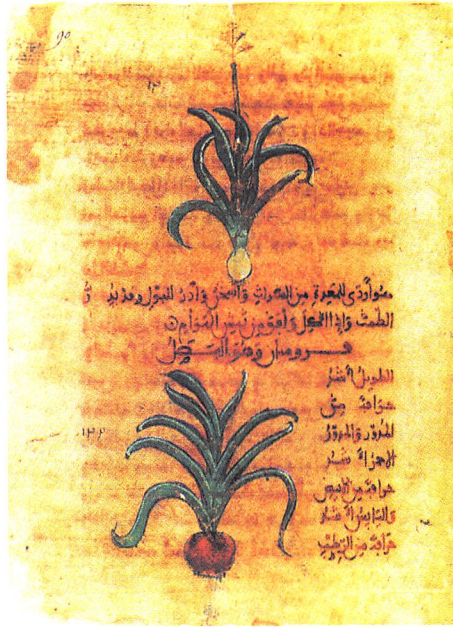 90
هو أردى للمعدة من الكراث واسخن وأدر للبول وقد يدر
الطمث واذا اكل وافق من نهش الهوام
قروميان وهو البصل
الطويل أشد
حرافة من
المدور والمدور
الاحمر أشد
حرافة من الابيض
واليابس أشد
حرافة من الرطب